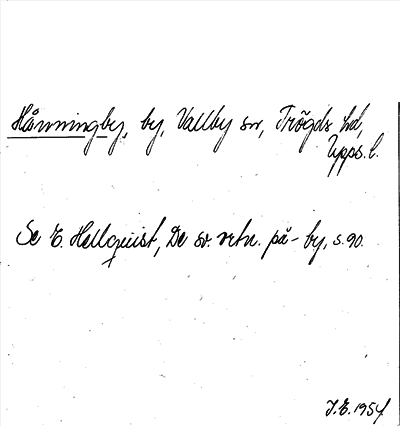 Hånningby, by, Vallby sn, Trögds hd,
Upps. l.
Se E. Hellquist, De sv. ortn. på -by, s. 90.
J.E. 1954